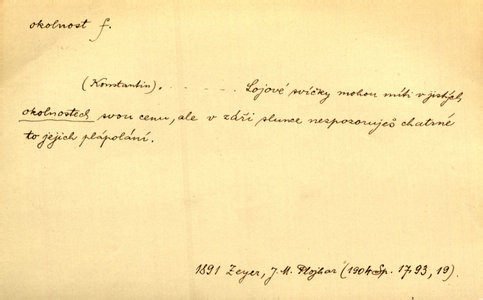 okolnost f.
(Konstantin). - - - - - - Lojové svíčky mohou míti v jistých
okolnostech svou cenu, ale v záři slunce nezpozoruješ chatrné
to jejich plápolání.
1891 Zeyer, J. M. Plojhar (1904 Sp. 17.93, 19).